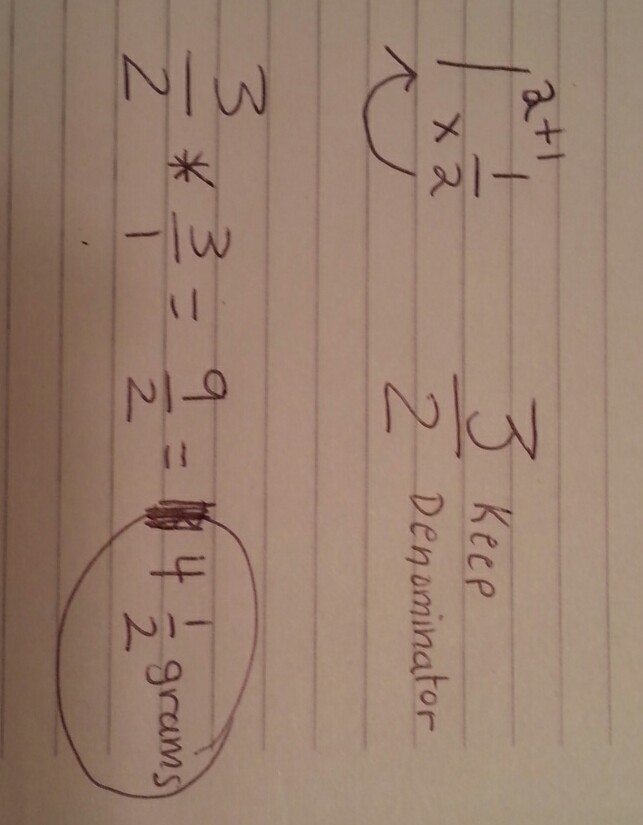 2+1
1 × 1/2 3/2 Keep Denominator
3/2 * 3/1 = 9/2 = 4 1/2 grams